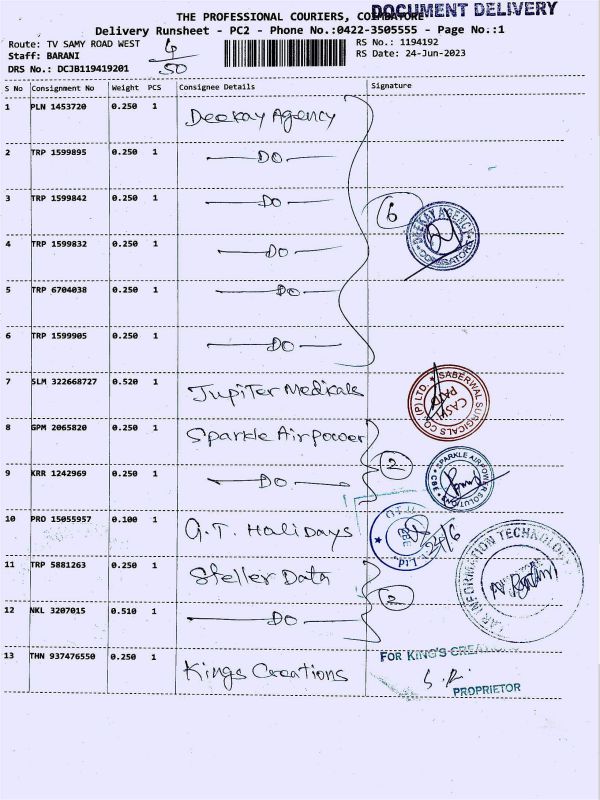 DOCUMENT DELIVERY
THE PROFESSIONAL COURIERS, COIMBATORE
Delivery Runsheet - PC2 - Phone No.:0422-3505555 - Page No.:1
Route: TV SAMY ROAD WEST
Staff: BARANI
DRS No.: DCJB119419201
6
50
RS No.: 1194192
RS Date: 24-Jun-2023
S No Consignment No Weight PCS Consignee Details Signature
1 PLN 1453720 0.250 1 Deekay Agency
2 TRP 1599895 0.250 1 —DO—
3 TRP 1599842 0.250 1 —DO—
6
DEEKAY AGENCY
COIMBATORE
4 TRP 1599832 0.250 1 —DO—
5 TRP 6704038 0.250 1 —DO—
6 TRP 1599905 0.250 1 —DO—
7 SLM 322668727 0.520 1 Jupiter Medicals
SABERWAL SURGICALS CO (P) LTD.
CASH
PAID
8 GPM 2065820 0.250 1 Sparkle Airpower
2
SPARKLE AIR POWER SOLUTIONS
CBE
9 KRR 1242969 0.250 1 —DO—
10 PRO 15055957 0.100 1 G.T. Halidays
24/6
11 TRP 5881263 0.250 1 Steller Data
2
INFORMATION TECHNOLOGY
12 NKL 3207015 0.510 1 —DO—
13 THN 937476550 0.250 1 Kings Creations
FOR KING'S CREATIONS
PROPRIETOR